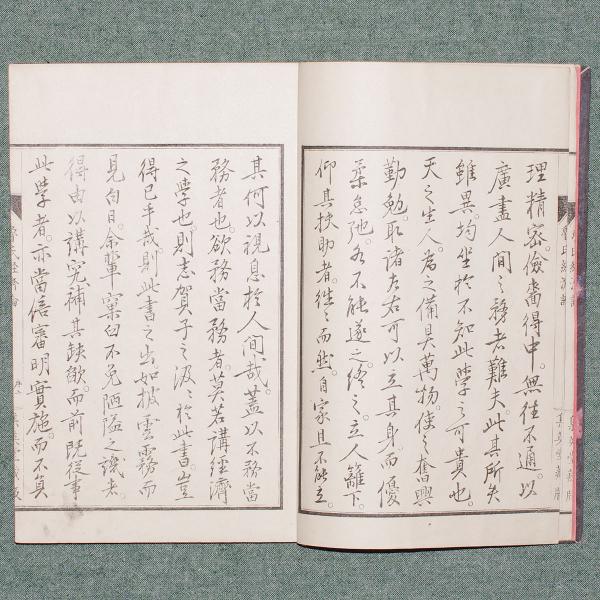 理精密。儉嗇得中。無往不通。以
廣盡人間之務者難夫。此其所失
雖異。均坐於不知此學之可貴也。
天之生人。爲之備具萬物。使之奮興
勤勉。取諸左右可以立其身。而優
柔怠弛。各不能遂之終之。立人籬下。
仰其扶助者。往往而然。自家且不能立。
其何以視息於人間哉。蓋以不務當
務者也。欲務當務者。莫若講經濟
之學也。則志賀子之汲汲於此書。豈
得已乎哉。則此書之出。如披雲霧而
見白日。余輩窠臼不免陋隘之譏者。
得由以講究補其缺欲。而前既從事
此學者。亦當信審明實施。而不負